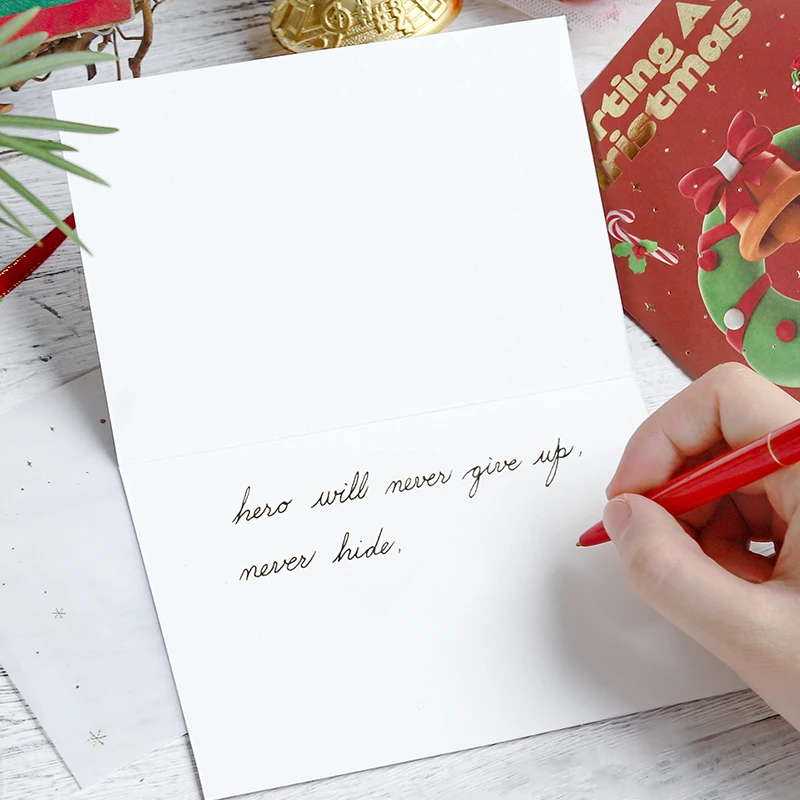 hero will never give up,
never hide,
rting A
ristmas